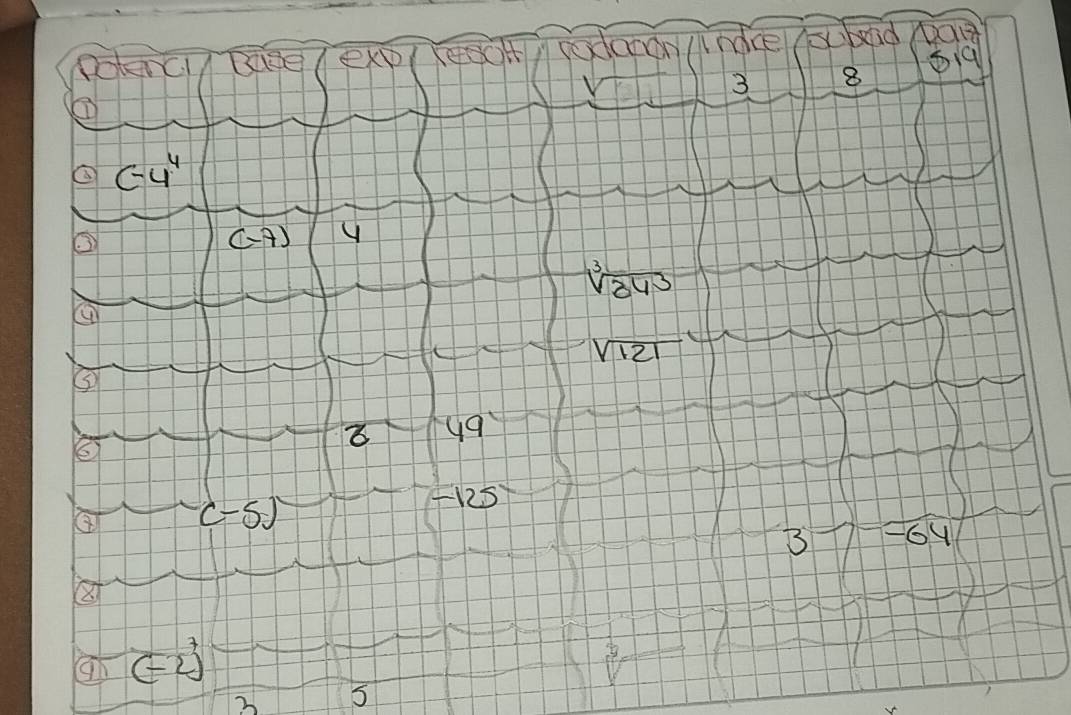 Potenci Base exp result radacan indice subrad raiz
① √ 3 8 519
② (-4⁴
③ (-7) 4
∛343
④
√121
⑤
⑥ 2 49
⑦ (-5) -125
3 -64
⑧
⑨ (-2)³
3 5